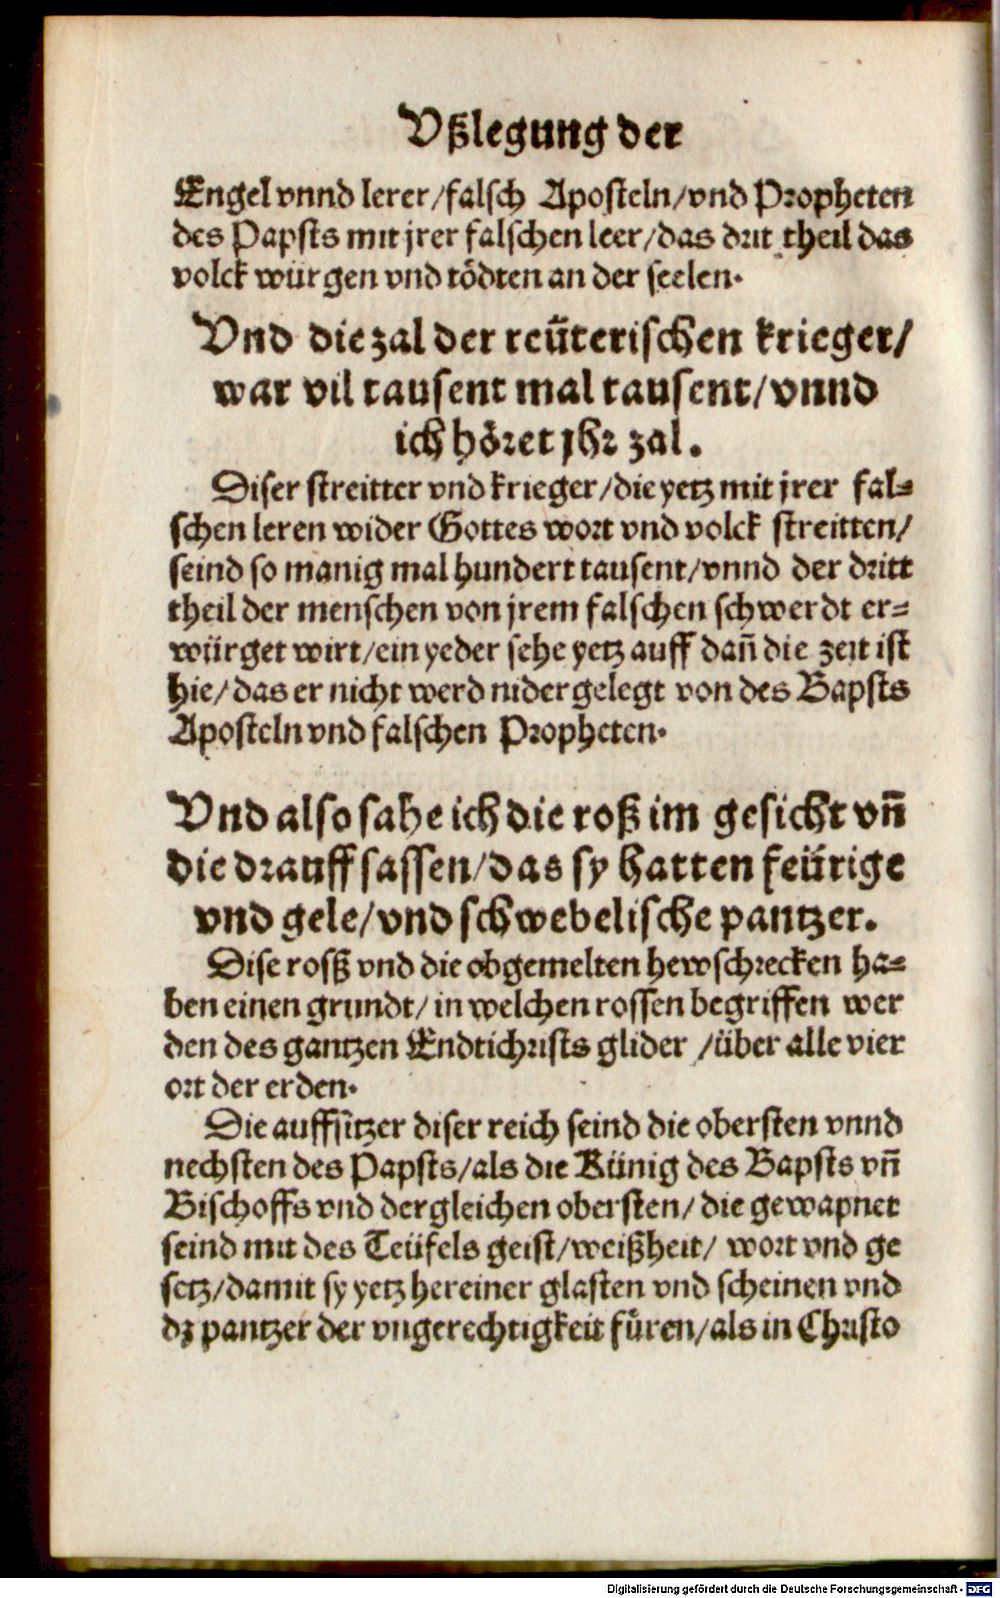 Vßlegung der
Engel vnnd lerer/falsch Aposteln/vnd Propheten
des Papsts mit jrer falschen leer/das drit theil das
volck würgen vnd tödten an der seelen.
Vnd die zal der reüterischen krieger/
war vil tausent mal tausent/vnnd
ich höret jhr zal.
Diser streitter vnd krieger/die yetz mit jrer fal⸗
schen leren wider Gottes wort vnd volck streitten/
seind so manig mal hundert tausent/vnnd der dritt
theil der menschen von jrem falschen schwerdt er⸗
würget wirt/ein yeder sehe yetz auff dañ die zeit ist
hie/das er nicht werd nidergelegt von des Bapsts
Aposteln vnd falschen Propheten.
Vnd also sahe ich die roß im gesicht vñ
die drauff sassen/das sy hatten feürige
vnd gele/vnd schwebelische pantzer.
Dise rosß vnd die obgemelten hewschrecken ha⸗
ben einen grundt/in welchen rossen begriffen wer
den des gantzen Endtichrists glider/über alle vier
ort der erden.
Die auffsitzer diser reich seind die obersten vnnd
nechsten des Papsts/als die Künig des Bapsts vñ
Bischoffs vnd dergleichen obersten/die gewapnet
seind mit des Teüfels geist/weißheit/ wort vnd ge
setz/damit sy yetz hereiner glasten vnd scheinen vnd
dz pantzer der vngerechtigkeit füren/als in Christo
Digitalisierung gefördert durch die Deutsche Forschungsgemeinschaft - DFG